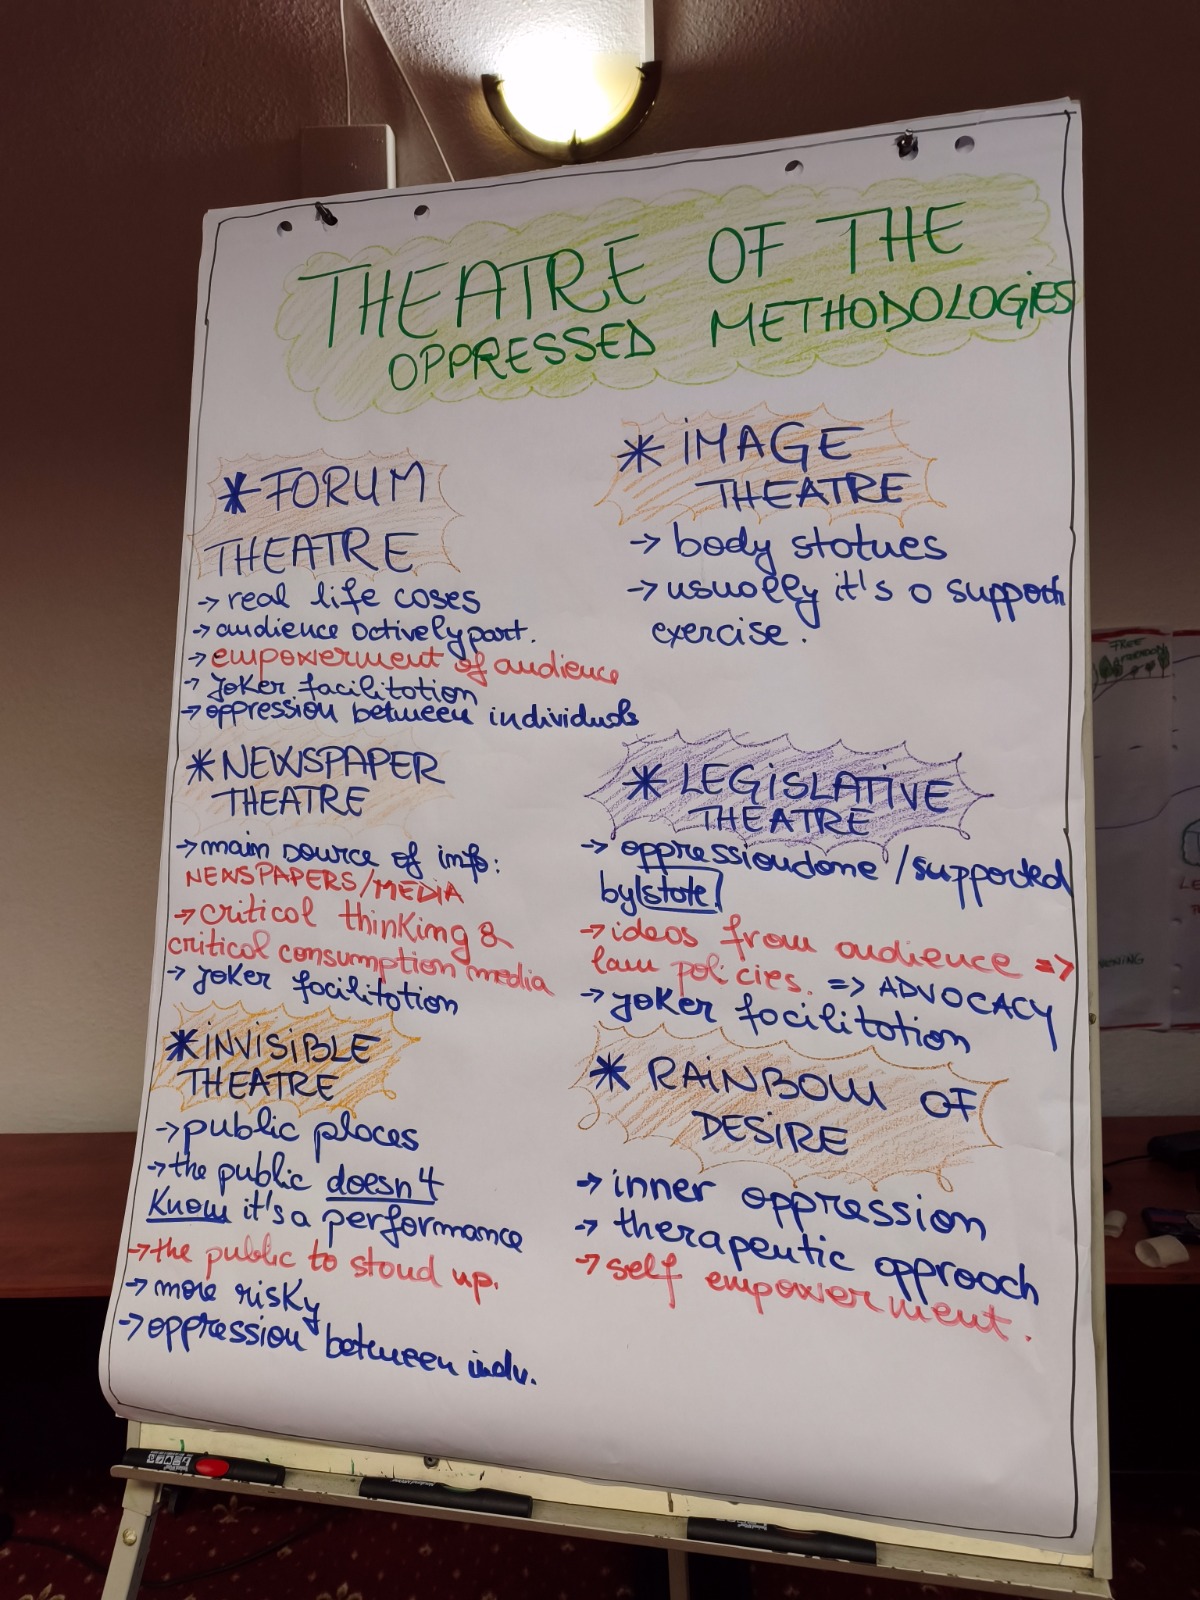 THEATRE OF THE
OPPRESSED METHODOLOGIES
* FORUM
THEATRE
→ real life cases
→ audience actively part.
→ empowerment of audience
→ Joker facilitation
→ oppression between individuals
* NEWSPAPER
THEATRE
→ main source of info:
NEWSPAPERS/MEDIA
→ critical thinking &
critical consumption media
→ Joker facilitation
* INVISIBLE
THEATRE
→ public places
→ the public doesn't
know it's a performance
→ the public to stand up.
→ more risky
→ oppression between indv.
* IMAGE
THEATRE
→ body statues
→ usually it's a support
exercise.
* LEGISLATIVE
THEATRE
→ oppression done / supported
by state!
→ ideas from audience =>
law policies. => ADVOCACY
→ Joker facilitation
* RAINBOW OF
DESIRE
→ inner oppression
→ therapeutic approach
→ self empowerment.
FREE